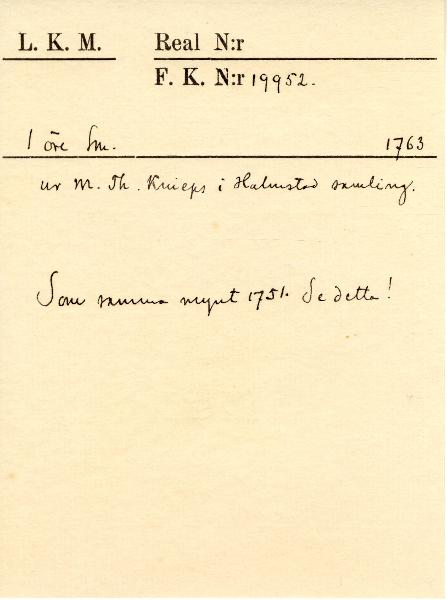 L. K. M. Real N:r
F. K. N:r 19952.
1 öre Sm. 1763
ur M. Th. Knieps i Halmstad samling.
Som samma mynt 1751. Se detta!